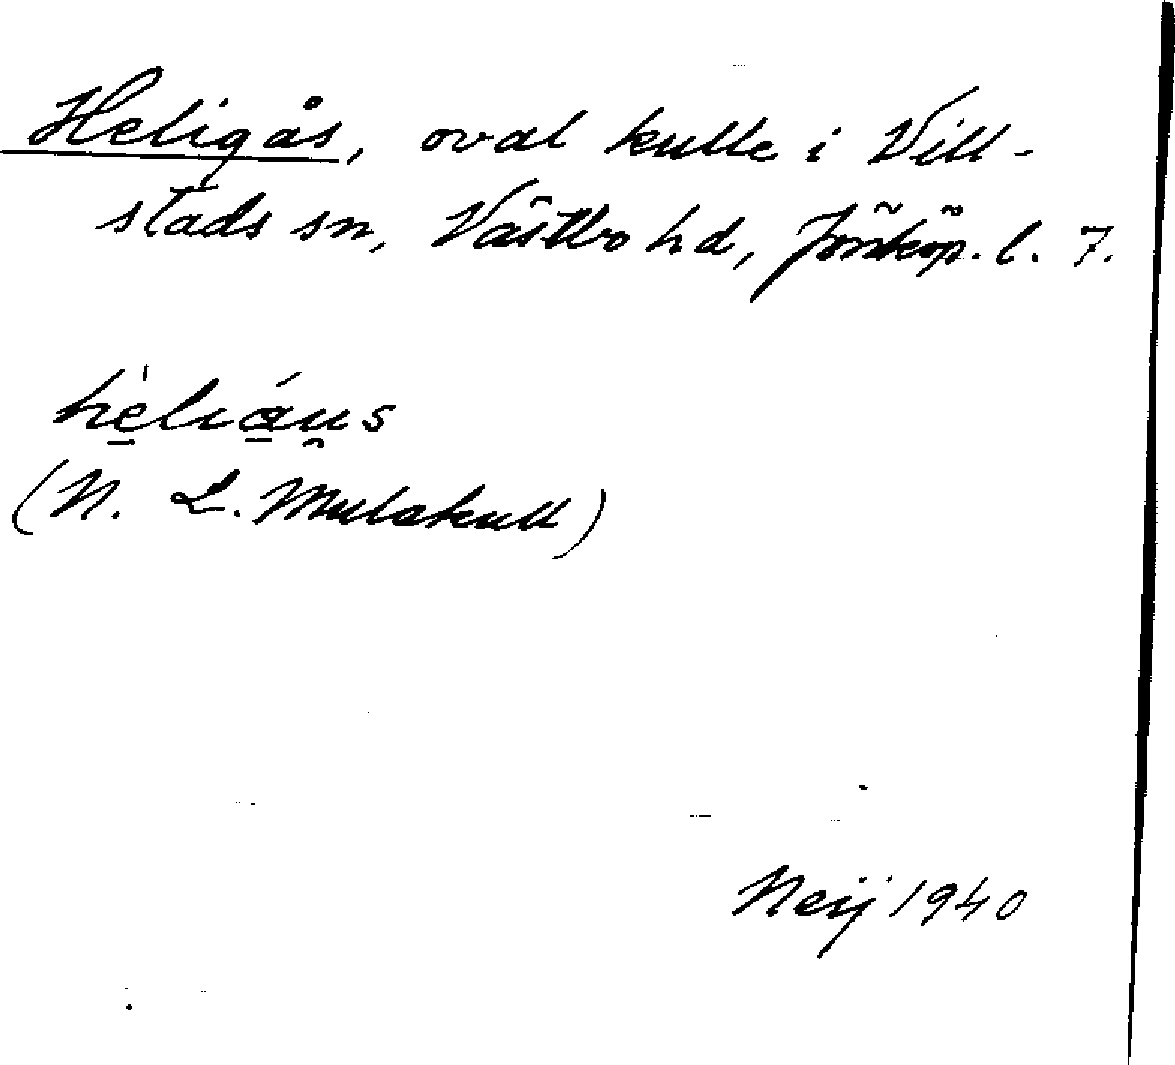 Heligås, oval kulle i Vill-
stads sn, Västbo hd, Jönköp. l. 7.
hèliáu̯s
(N. L. Mulakull)
Neij 1940